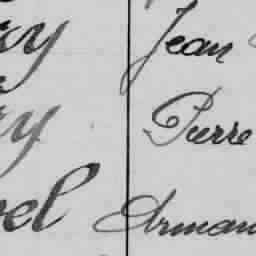 ry Jean
ry Pierre
el Arman